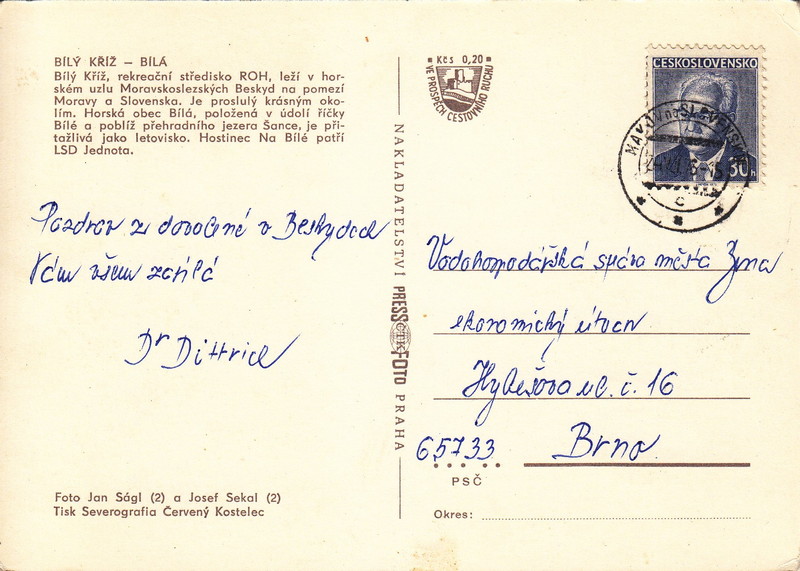 BÍLÝ KŘÍŽ – BÍLÁ
Bílý Kříž, rekreační středisko ROH, leží v hor-
ském uzlu Moravskoslezských Beskyd na pomezí
Moravy a Slovenska. Je proslulý krásným oko-
lím. Horská obec Bílá, položená v údolí říčky
Bílé a poblíž přehradního jezera Šance, je při-
tažlivá jako letovisko. Hostinec Na Bílé patří
LSD Jednota.
Pozdrav z dovolené v Beskydech
Vám všem zasílá
Dr Dittrich
Foto Jan Ságl (2) a Josef Sekal (2)
Tisk Severografia Červený Kostelec
NAKLADATELSTVÍ PRESSFOTO PRAHA
ČTK
Kčs 0,20
VE PROSPĚCH CESTOVNÍHO RUCHU
ČESKOSLOVENSKO
30h
MAKOV na SLOVENSKU
c
Vodohospodářská správa města Brna
ekonomický útvar
Hybešova ul. č. 16
65733 Brno
PSČ
Okres: